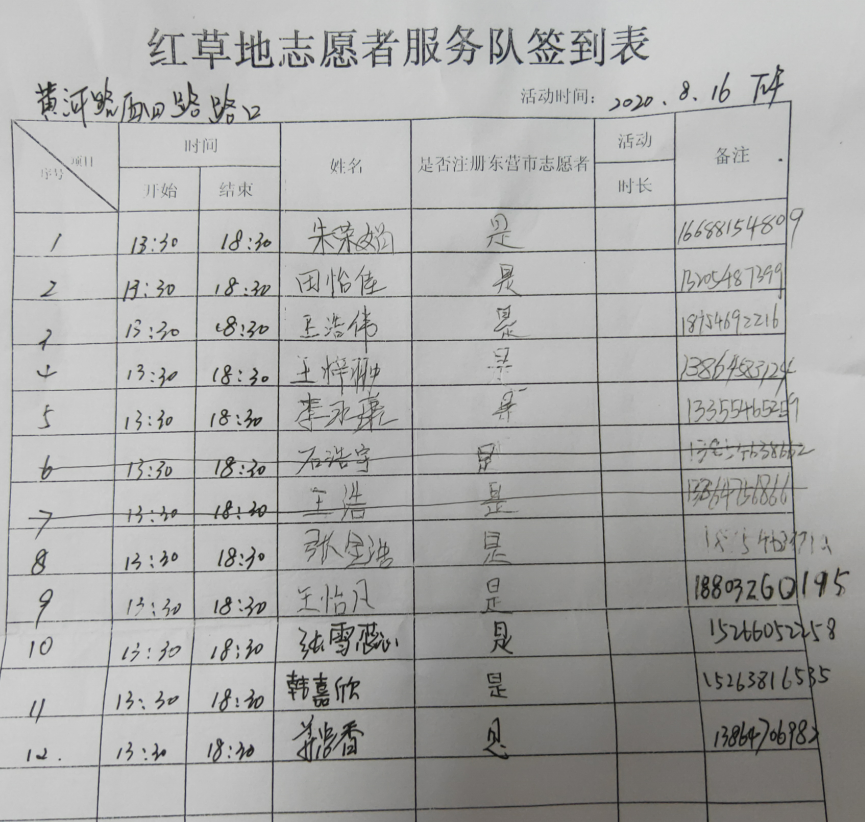 红草地志愿者服务队签到表
黄河路西四路路口 活动时间: 2020.8.16 下午
项目 序号 时间 姓名 是否注册东营市志愿者 活动 备注
开始 结束 时长
1 13:30 18:30 朱荣 是 16688154809
2 13:30 18:30 田怡佳 是 13205487399
3 13:30 18:30 王浩伟 是 18754692216
4 13:30 18:30 王梓 是
5 13:30 18:30 李 是 13355465259
6 13:30 18:30 石浩宇 是
7 13:30 18:30 王浩 是 13864756866
8 13:30 18:30 张 浩 是
9 13:30 18:30 王怡凡 是 18803260195
10 13:30 18:30 张雪蕊 是 15266052258
11 13:30 18:30 韩嘉欣 是 15263816535
12. 13:30 18:30 香 是